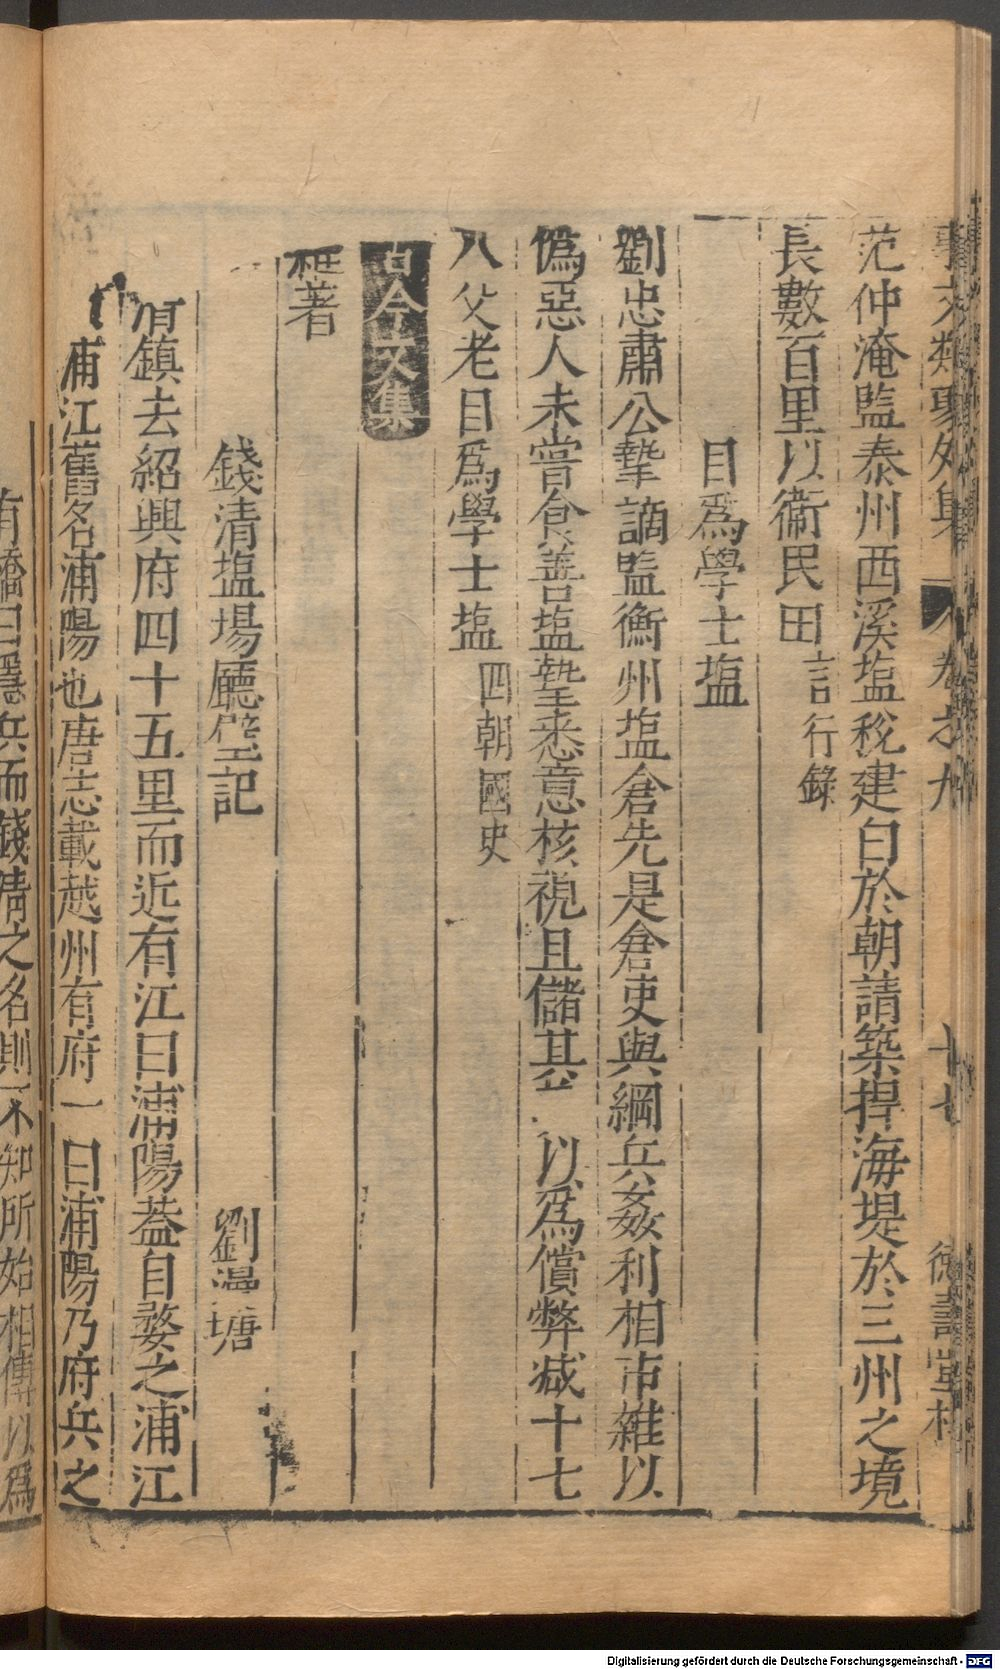 事文類聚外集 卷之九 十七 德壽堂梓
范仲淹監泰州西溪塩稅建白於朝請築捍海堤於三州之境
長數百里以衞民田言行錄
目爲學士塩
劉忠肅公摯謫監衡州塩倉先是倉吏與綱兵姦利相市雜以
僞惡人未嘗食善塩摯悉意核視且儲其 以爲償弊减十七
八父老目爲學士塩四朝國史
古今文集
雜著
錢清塩場廳壁記 劉溫塘
鎮去紹興府四十五里而近有江曰浦陽葢自婺之浦江
浦江舊名浦陽也唐志載越州有府一曰浦陽乃府兵之
有橋曰隱兵而錢清之名則不知所始相傳以爲
Digitalisierung gefördert durch die Deutsche Forschungsgemeinschaft - DFG